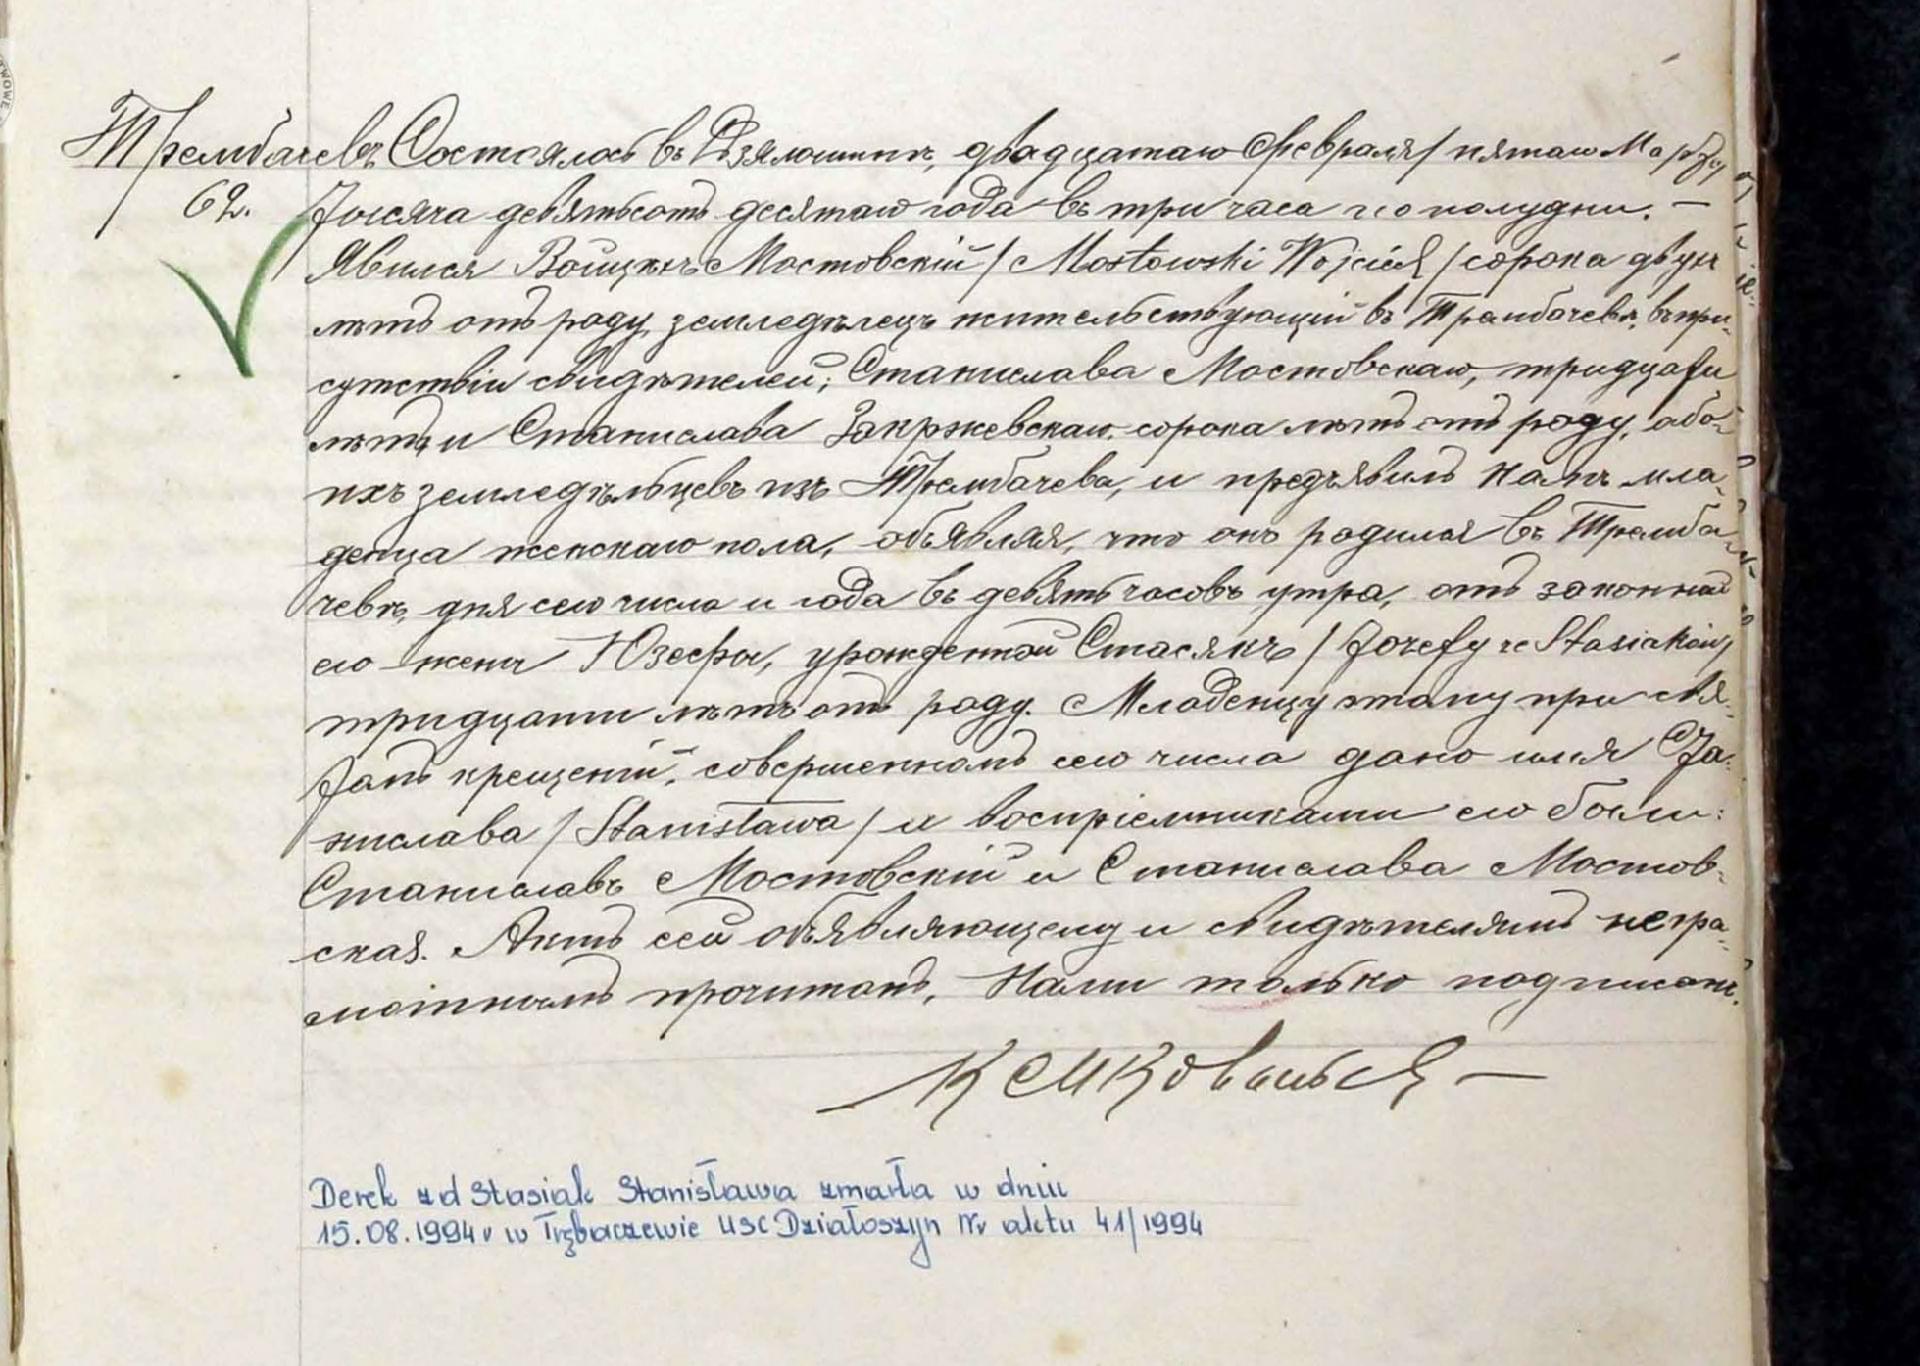 Трембачевъ Состоялось въ Дзялошинѣ, двадцатаго Февраля / пятаго Марта
62. Тысяча девятьсотъ десятаго года въ три часа по полудни. —
Явился Войцѣхъ Мостовскій / Mostowski Wojciech / сорока двухъ
лѣтъ отъ роду, земледѣлецъ жительствующій въ Трембачевѣ, въ при-
сутствіи свидѣтелей; Станислава Мостовскаго, тридцати
лѣтъ и Станислава Закржевскаго, сорока лѣтъ отъ роду, обо-
ихъ земледѣльцевъ изъ Трембачева, и предъявилъ Намъ мла-
денца женскаго пола, объявляя, что онъ родился въ Тремба-
чевѣ, дня сего числа и года въ девять часовъ утра, отъ законной
его жены Юзефы, урожденной Стасякъ / Józefy ze Stasiaków /
тридцати лѣтъ отъ роду. Младенцу этому при свя-
томъ крещеніи, совершенномъ сего числа дано имя Ста-
нислава / Stanisława / и воспріемниками его были:
Станиславъ Мостовскій и Станислава Мостов-
ская. Актъ сей объявляющему и свидѣтелямъ негра-
мотнымъ прочитанъ, Нами только подписанъ.
Derek zd Stasiak Stanisława zmarła w dniu
15.08.1994 r w Trębaczewie USC Działoszyn Nr aktu 41/1994